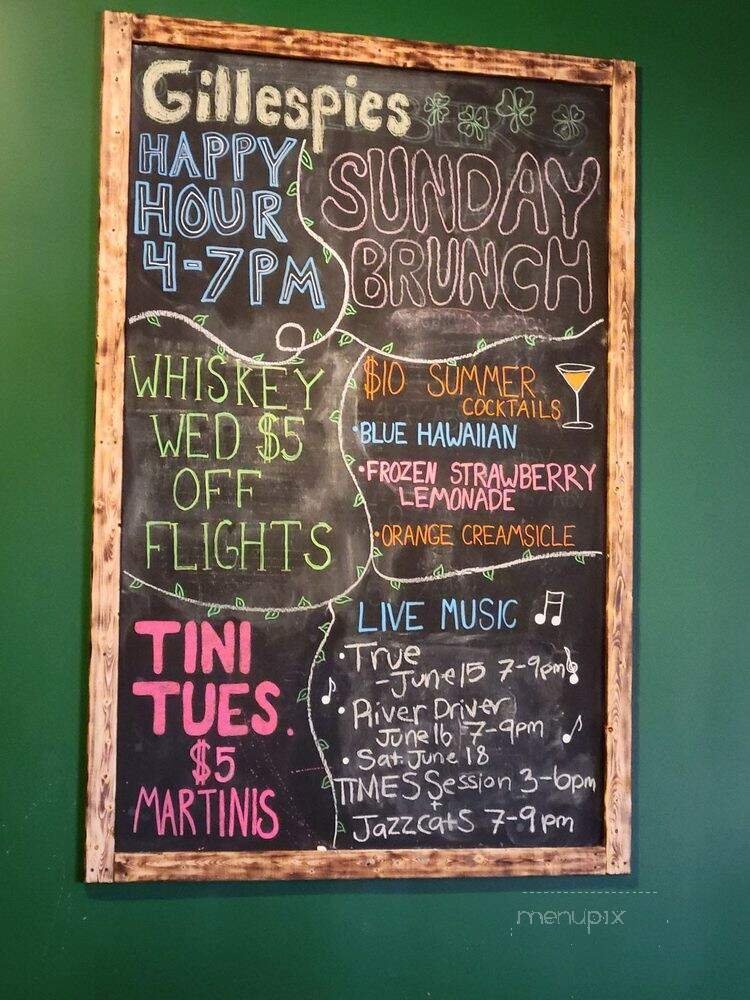 Gillespies
HAPPY
HOUR
4-7PM
SUNDAY
BRUNCH
WHISKEY
WED $5
OFF
FLIGHTS
$10 SUMMER
COCKTAILS
•BLUE HAWAIIAN
•FROZEN STRAWBERRY
LEMONADE
•ORANGE CREAMSICLE
TINI
TUES.
$5
MARTINIS
LIVE MUSIC
•True
-June 15 7-9pm
•River Driver
June 16 7-9pm
•Sat June 18
TIMES Session 3-6pm
+
Jazzcats 7-9pm
menupix